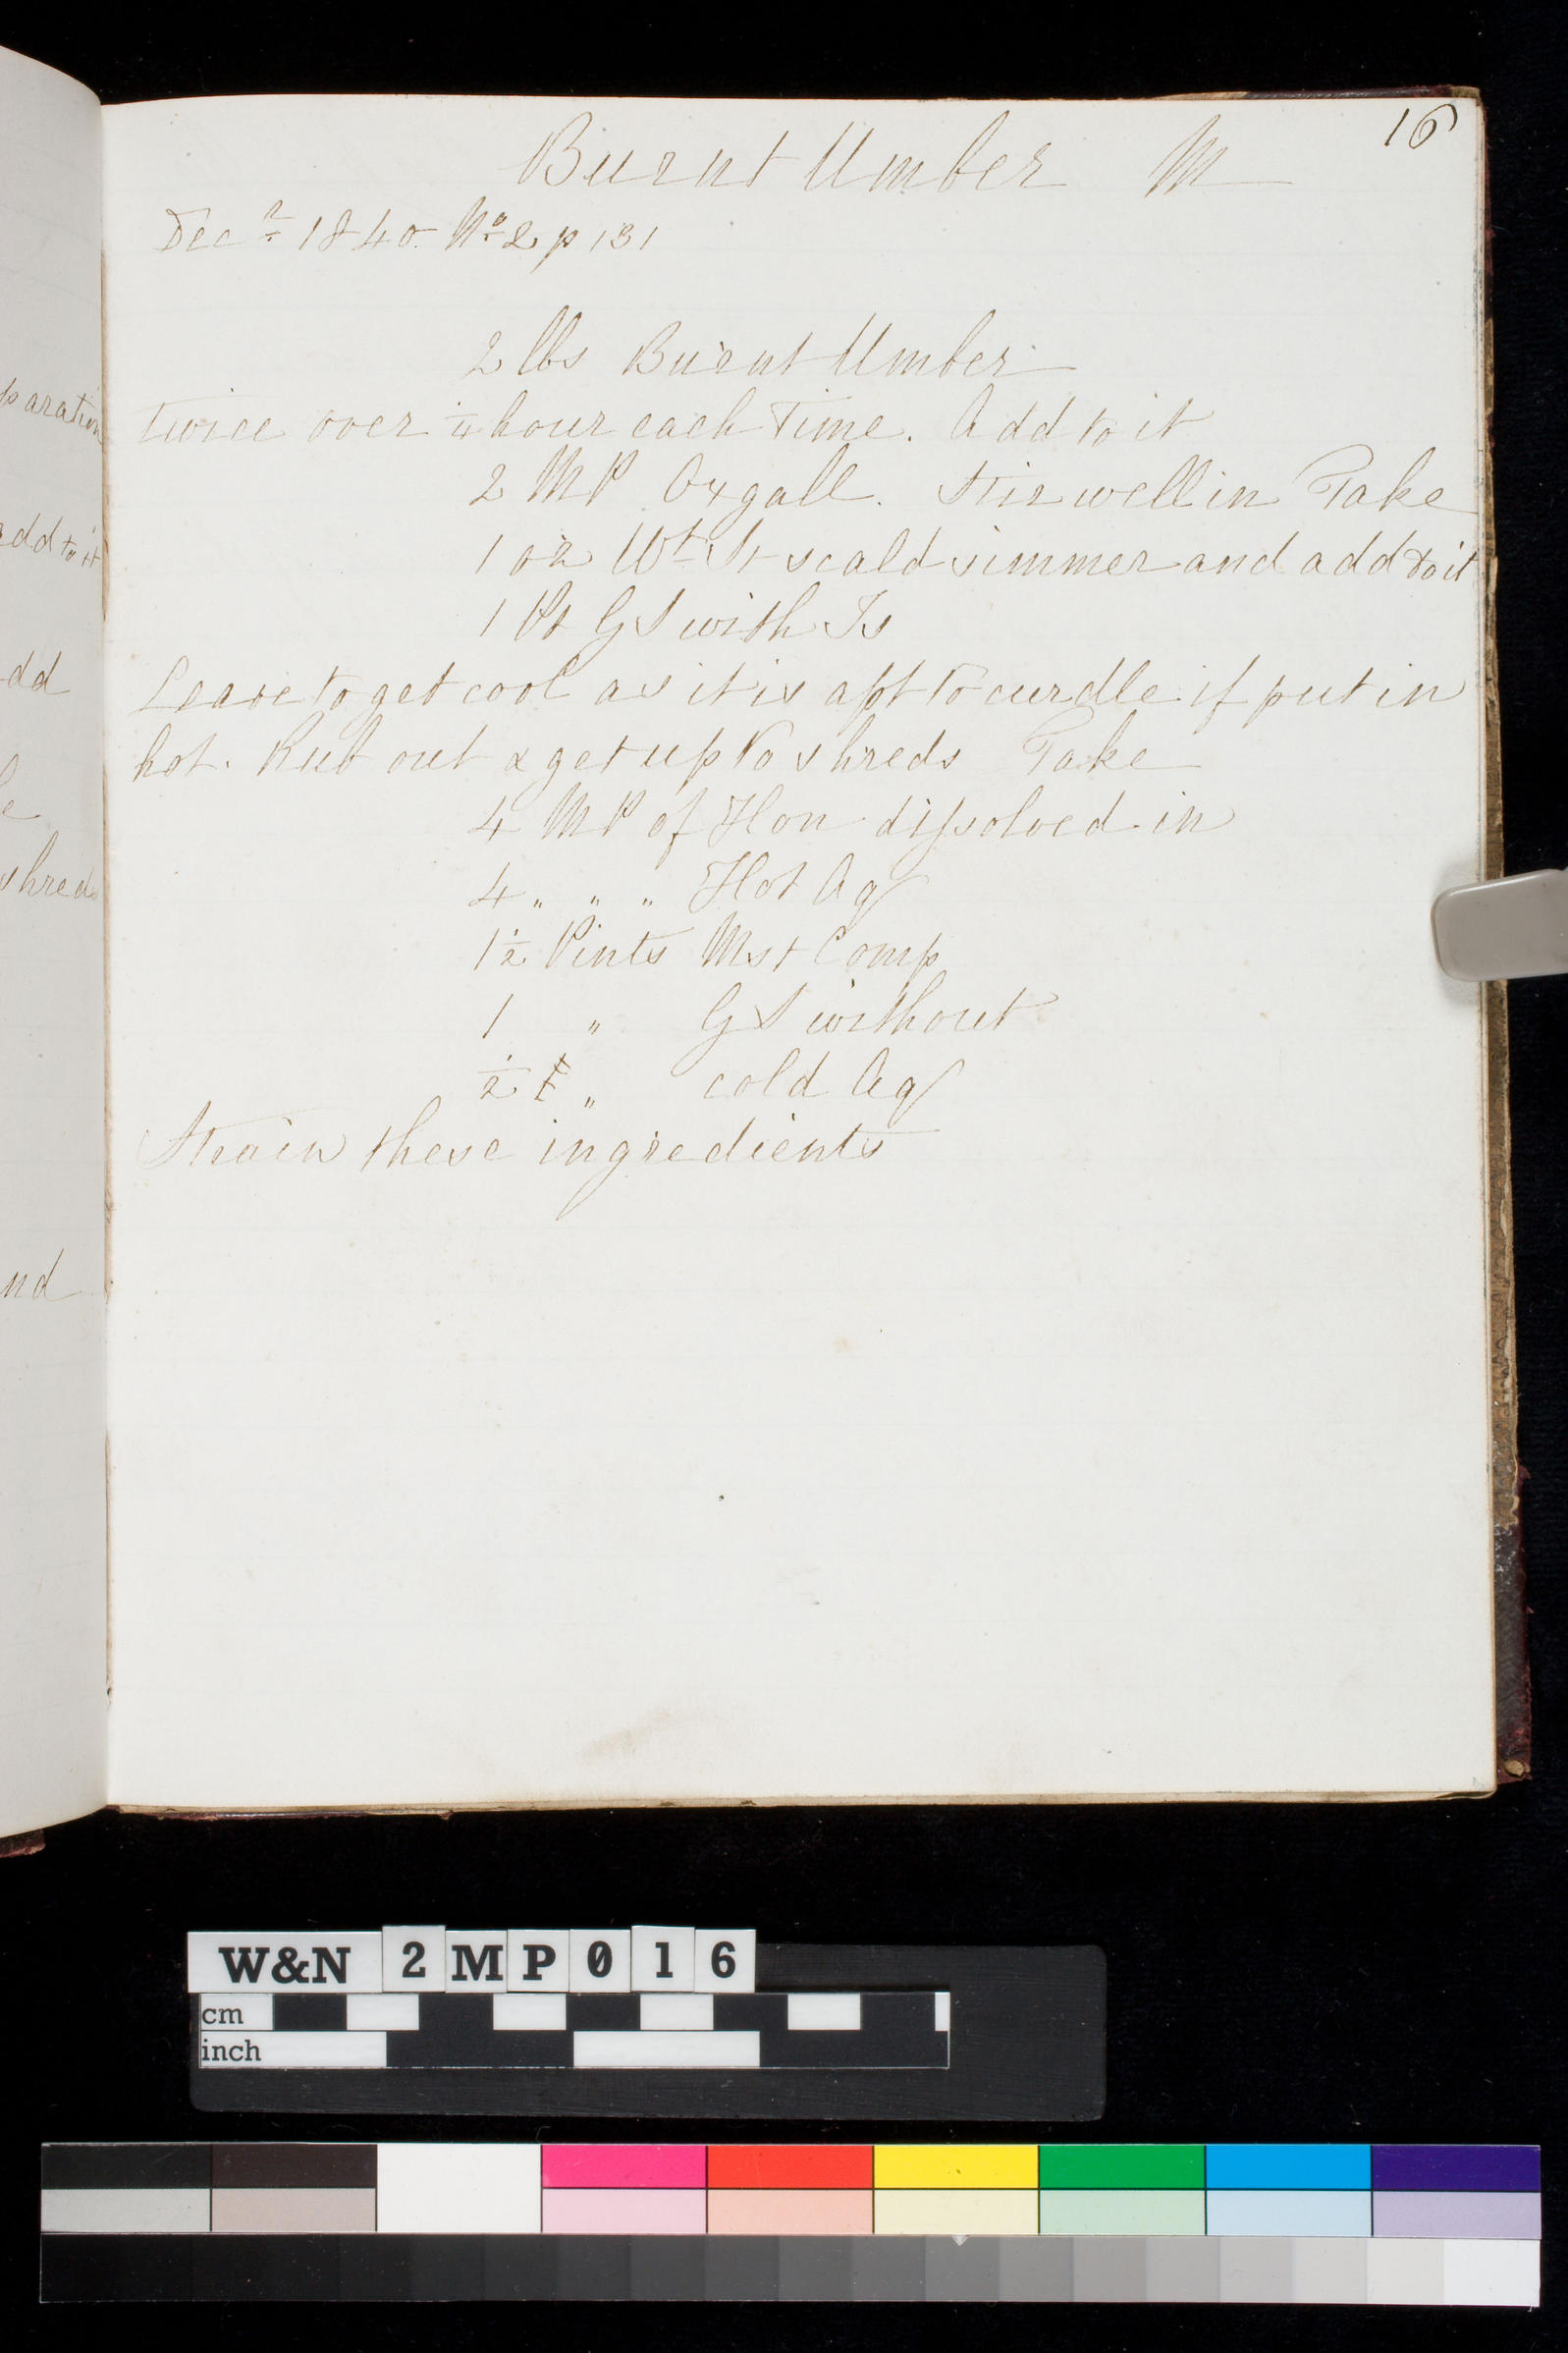 16
Burnt Umber M
Decr 1840. No 2 p 131
2 lbs Burnt Umber
twice over 1/4 hour each Time. Add to it
2 MP Oxgall. Stir well in Take
1 oz Wt St scald simmer and add to it
1 Pt GS with Is
Leave to get cool as it is apt to curdle if put in
hot. Rub out & get up to shreds Take
4 MP of Hon dissolved in
4 " " " Hot Aq
1 1/2 Pints Mst Comp
1 " GS without
1/2 " cold Aq
Strain these ingredients
paration
add to it
dd
e
shreds
nd
W&N 2MP016
cm
inch